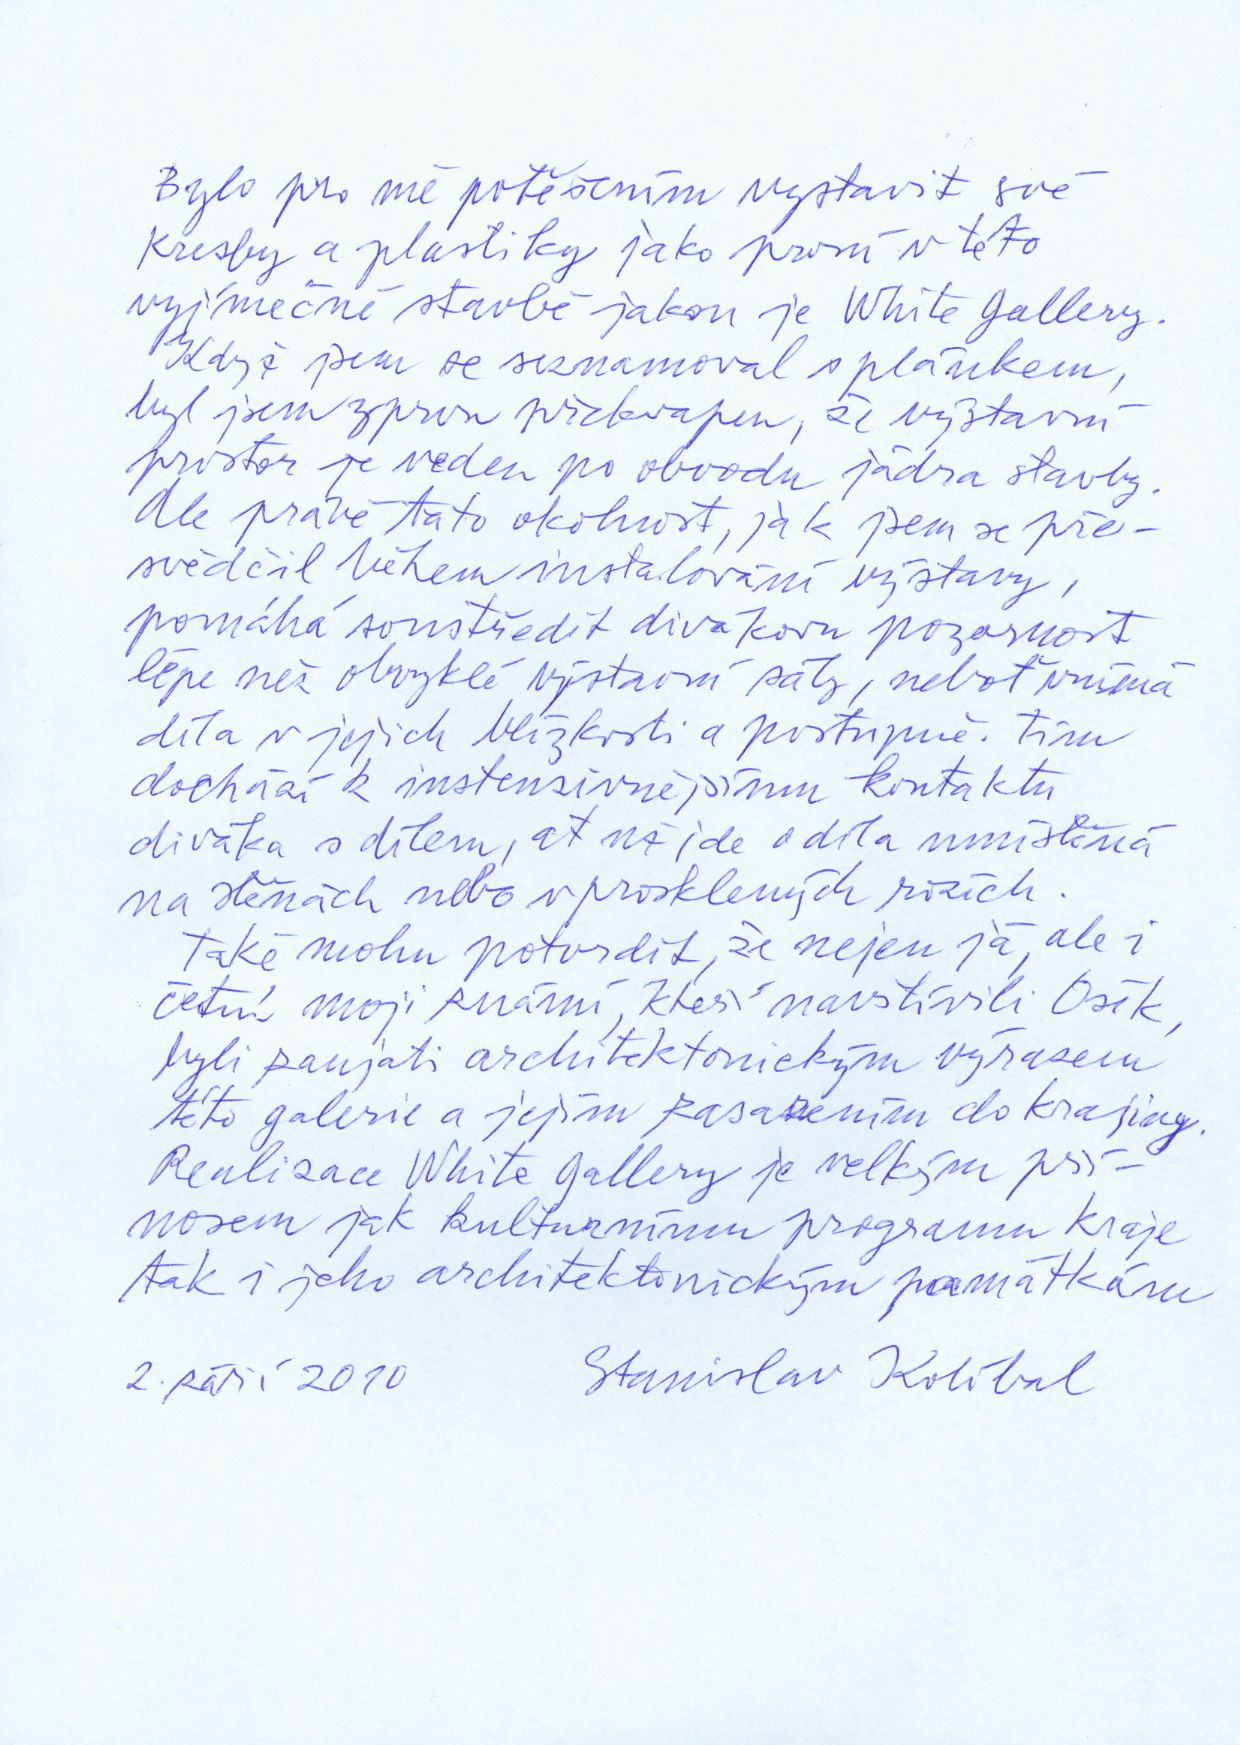 Bylo pro mě potěšením vystavit své
kresby a plastiky jako první v této
vyjímečné stavbě jakou je White Gallery.
Když jsem se seznamoval s plánkem,
byl jsem zprvu překvapen, že výstavní
prostor je veden po obvodu jádra stavby.
Ale právě tato okolnost, jak jsem se pře-
svědčil během instalování výstavy,
pomáhá soustředit divákovu pozornost
lépe než obvyklé výstavní sály, neboť vnímá
díla v jejich blízkosti a postupně. Tím
dochází k instensivnějšímu kontaktu
diváka s dílem, ať už jde o díla umístěná
na stěnách nebo v prosklených rizích.
Také mohu potvrdit, že nejen já, ale i
četní moji známí, kteří navštívili Osík,
byli zaujati architektonickým výrazem
této galerie a jejím zasazením do krajiny.
Realizace White Gallery je velkým pří-
nosem jak kulturnímu programu kraje
tak i jeho architektonickým památkám
2. září 2010 Stanislav Kolíbal